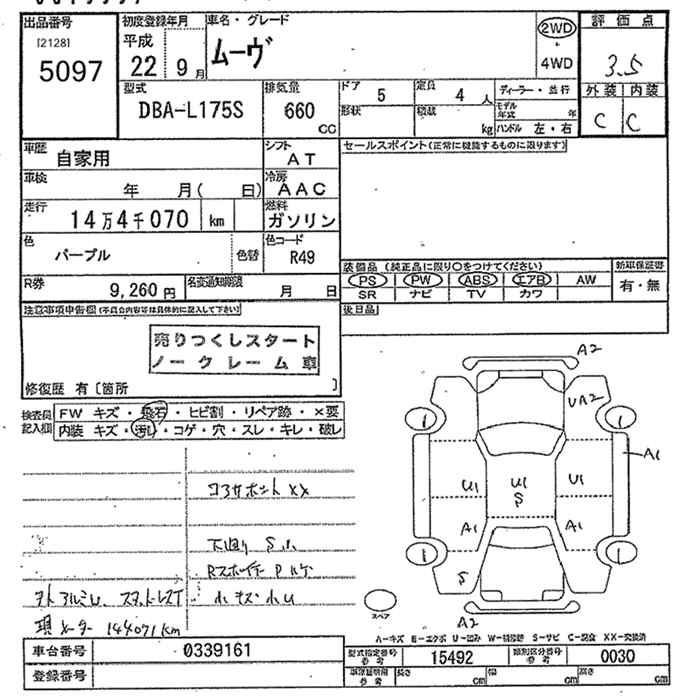 出品番号
[2128]
5097
初度登録年月
平成
22 9月
車名・グレード
ムーヴ
2WD
・
4WD
評価点
3.5
外装 内装
C C
型式
DBA-L175S
排気量
660
CC
ドア
5
形状
定員
4 人
積載
kg
ディーラー・並行
モデル年式 年
ハンドル 左・右
車歴
自家用
シフト
AT
セールスポイント(正常に機能するものに限ります)
車検
年 月( 日)
冷房
AAC
走行
14万4千070 km
燃料
ガソリン
色
パープル
色替
色コード
R49
R券
9,260 円
名変通知期限
月 日
装備品 (純正品に限り○をつけてください)
PS PW ABS エアB AW
SR ナビ TV カワ
新車保証書
有・無
後日品
注意事項申告欄(不具合内容等は具体的に記入して下さい)
売りつくしスタート
ノークレーム車
修復歴 有〔箇所 〕
検査員記入欄
FW キズ・飛石・ヒビ割・リペア跡・×要
内装 キズ・汚れ・コゲ・穴・スレ・キレ・破レ
コアサポート XX
下廻り S小
ホトアルミU、スタットレス
現メーター 144071km
A2
UA2
1 1
A1
U1 U1 S U1
A1 A1
1 1
S
スペア
A2
A-キズ E-エクボ U-凹み W-補修跡 S-サビ C-腐食 XX-交換済
車台番号
0339161
登録番号
型式指定番号 参考
15492
類別区分番号 参考
0030
車庫証明用 参考
長さ cm
幅 cm
高さ cm